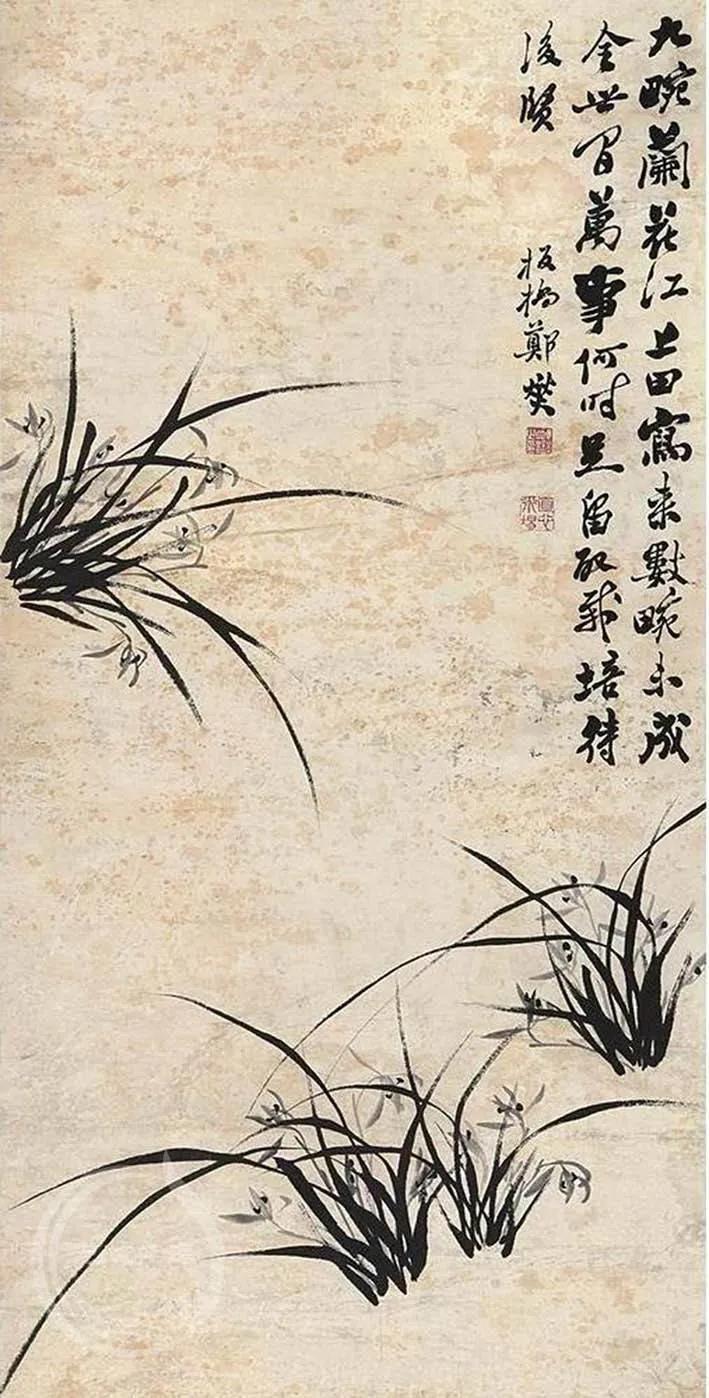 九畹蘭花江上田寫來數畹未成
全世間萬事何时足留取栽培待
後賢
板橋鄭燮